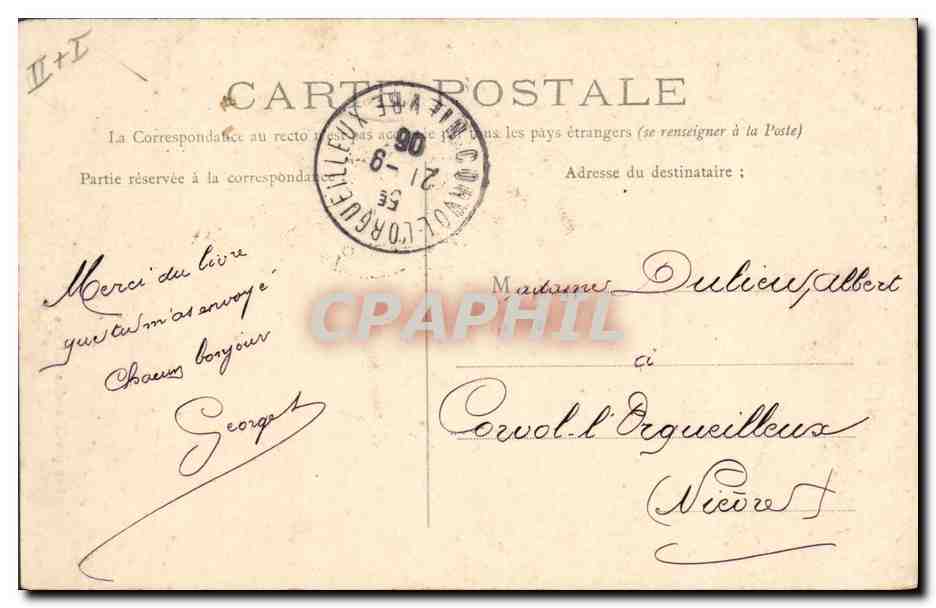 II + I
CARTE POSTALE
La Correspondance au recto n'est pas acceptée par tous les pays étrangers (se renseigner à la Poste)
Partie réservée à la correspondance
Adresse du destinataire ;
CORVOL-L'ORGUEILLEUX NIEVRE
5E
21 -9
06
Merci du livre
que tu m'as envoyé
bonjour
George
Madame Dulieu, Albert
à
Corvol-l'Orgueilleux
(Nièvre)
CPAPHIL